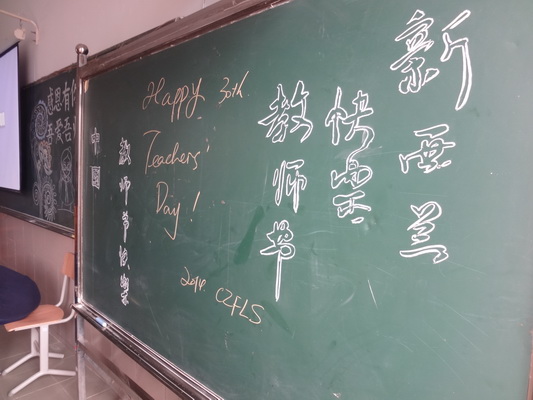 新西兰
快樂
教师节
Happy 30th.
Teachers'
Day!
2014 CZFLS
教师节快樂
中国
感恩有
吾爱吾